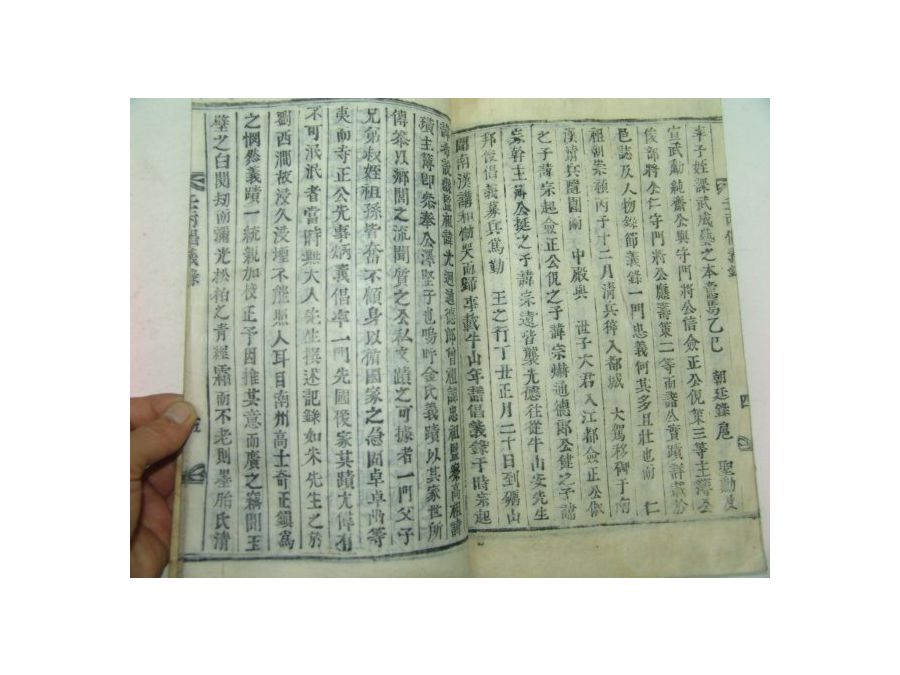 李子姪課武成藝之本意焉乙巳 朝廷錄扈 聖勳及
宣武勳純齋公與守門將公信僉正公俔第三等主簿公
俊部將公仁守門將公應壽策二等而諸公實蹟詳載於
邑誌及人物錄節義錄一門忠義何其多且壯也南 仁
祖朝崇禎丙子十二月清兵稗入都城 大駕移御于南
漢清兵隨圍南 中殿與 世子大君入江都僉正公俶
之子諱宗起僉正公俔之子諱宗爀通德郎公健之子諱
宗幹主簿公挺之子諱宗遠皆襲先德往從牛山安先生
邦俊倡義募兵爲勤 王之行丁丑正月二十日到礪山
聞南漢講和慟哭而歸事載牛山年譜倡義錄于時宗起
四
壬丙倡義錄
諱 監祖諱 迪通德郎曾祖諱忠 祖諱
主簿卽叅奉公澤堅子也嗚呼金氏義蹟以其家世所
傳叅以鄉閭之流聞質之公私文蹟之可據者一門父子
兄弟叔姪祖孫皆奮不顧身以循國家之急固卓卓尙等
夷而寺正公先事炳義倡率一門先國後家其蹟尤偉有
不可泯泯者當時無大人先生撰述記錄如朱先生之於
劉西澗故浸久浸堙不能照人耳目南州高士奇正鎭爲
之憫然義蹟一統親加校正予因推其意而廣之竊聞玉
壁之白閱劫而彌光松柏之青經霜而不老則墨胎氏清
壬丙倡義錄
五